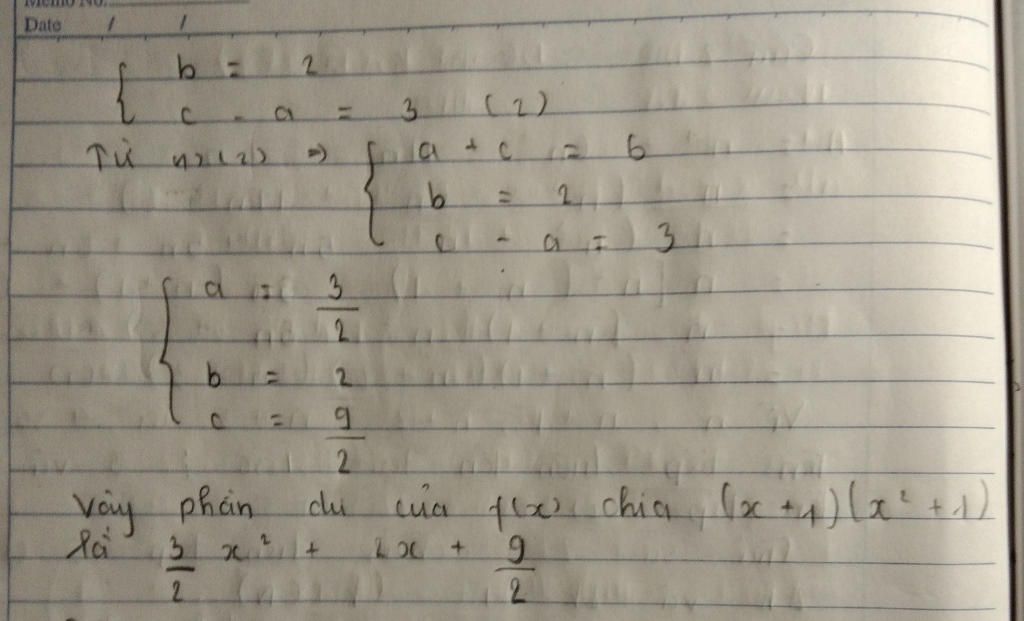 Memo No.
Date / /
{ b = 2
c - a = 3 (2)
Từ (1)(2) => { a + c = 6
b = 2
c - a = 3
{ a = 3/2
b = 2
c = 9/2
Vậy phần dư của f(x) chia (x + 1)(x² + 1)
là 3/2 x² + 2x + 9/2